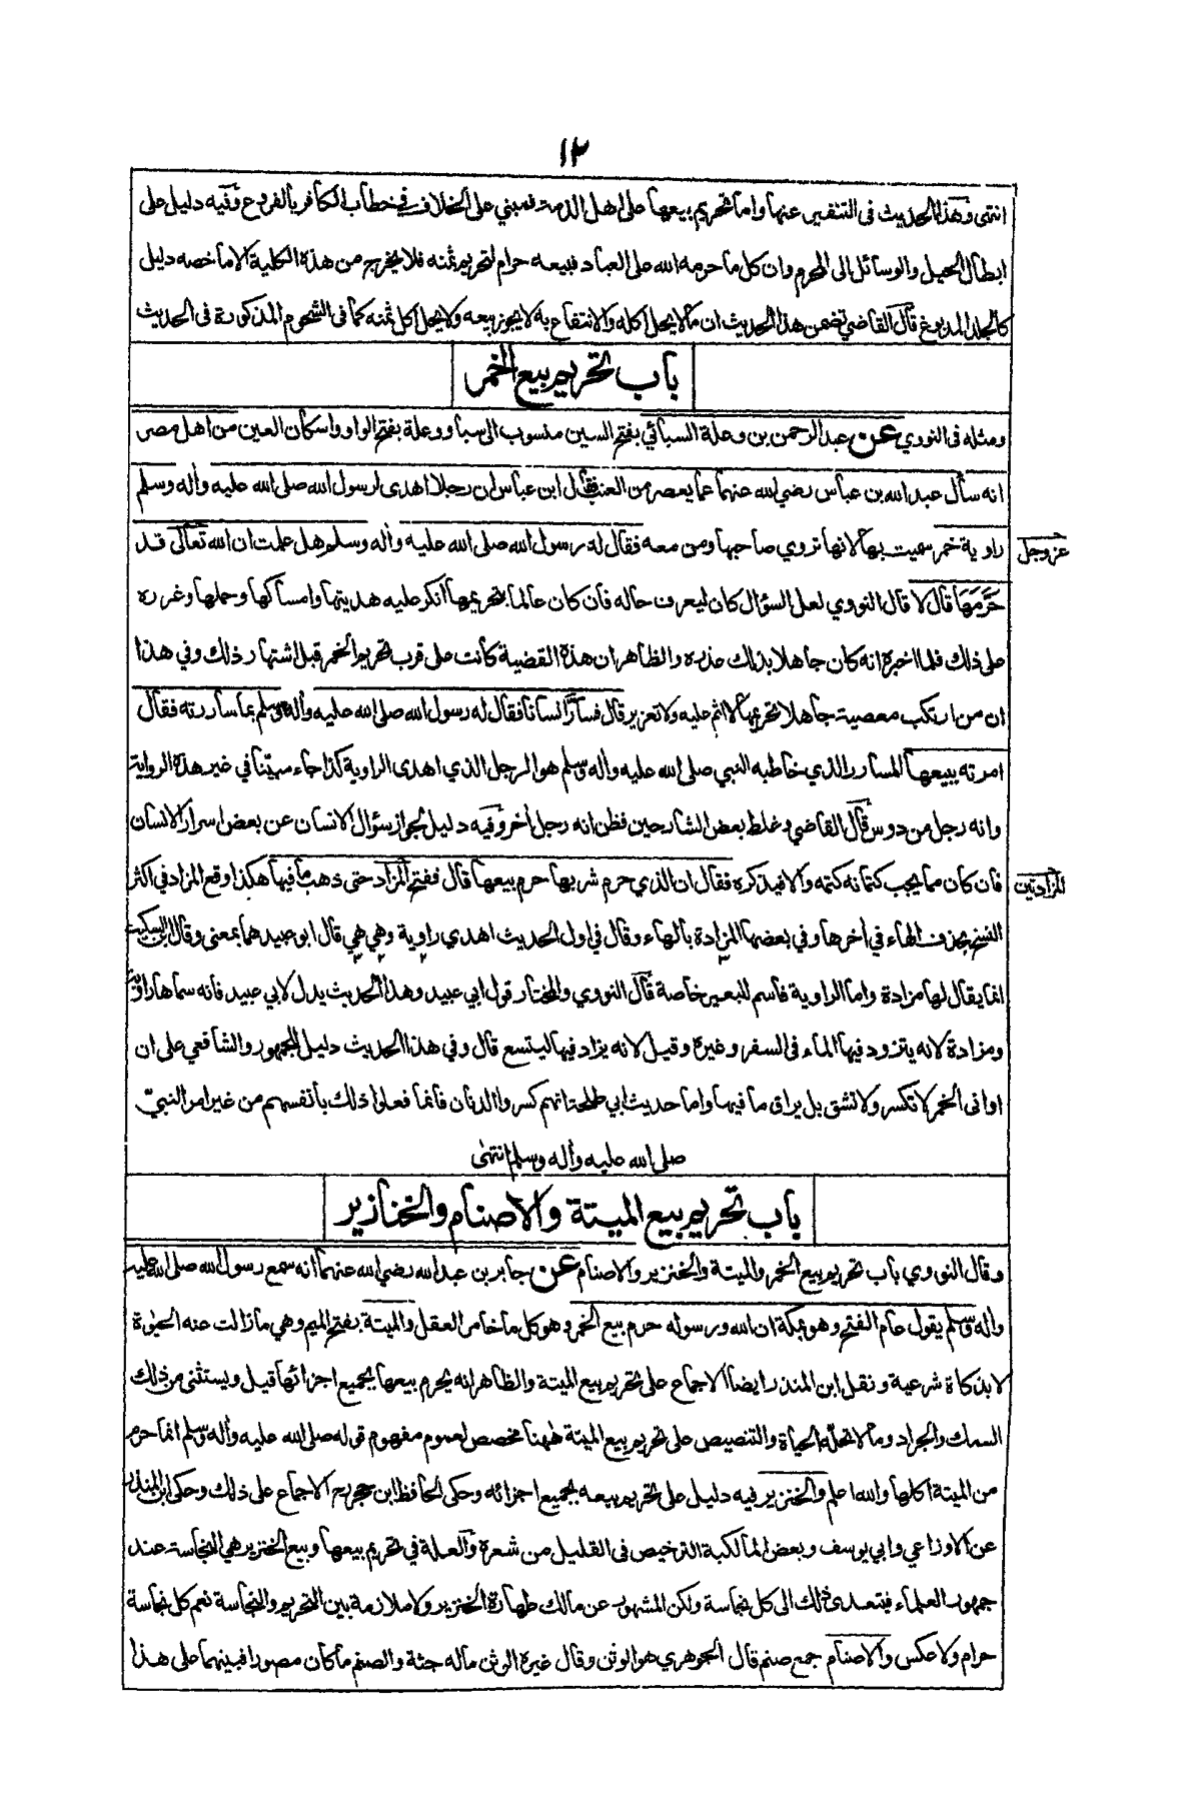 ١٢
انتهى وهذا الحديث فى التنفير عنها واما تحريم بيعها على اهل الذمة فمبني على الخلاف في خطاب الكافر بالفروع وفيه دليل على
ابطال الحيل والوسائل الى المحرم وان كل ما حرمه الله على العباد فبيعه حرام لتحريم ثمنه فلا يخرج من هذه الكلية الا ما خصه دليل
كالجلد المدبوغ قال القاضي تضمن هذا الحديث ان ما لا يحل اكله والانتفاع به لا يجوز بيعه ولا يحل اكل ثمنه كما فى الشحوم المذكورة فى الحديث
باب تحريم بيع الخمر
ومثله فى النووي عن عبد الرحمن بن وعلة السبائي بفتح السين منسوب الى سبأ ووعلة بفتح الواو واسكان العين من اهل مصر
انه سأل عبد الله بن عباس رضي الله عنهما عما يعصر من العنب فقال ابن عباس ان رجلا اهدى لرسول الله صلى الله عليه وأله وسلم
راوية خمر سميت بها لانها تروي صاحبها ومن معه فقال له رسول الله صلى الله عليه وأله وسلم هل علمت ان الله تعالى قد
عز وجل
حَرَّمَهَا قال لا قال النووي لعل السؤال كان ليعرف حاله فان كان عالما بتحريمها انكر عليه هديتها وامساكها وحملها وغرره
على ذلك فلما اخبره انه كان جاهلا بذلك عذره والظاهر ان هذه القضية كانت على قرب تحريم الخمر قبل اشتهار ذلك وفي هذا
ان من ارتكب معصية جاهلا تحريمها لا اثم عليه ولا تعزير قال فسارَّ انسانا فقال له رسول الله صلى الله عليه وأله وسلم بما ساررته فقال
امرته ببيعها المسارر الذي خاطبه النبي صلى الله عليه وأله وسلم هو الرجل الذي اهدى الراوية كذا جاء مبيّنا في غير هذه الرواية
وانه رجل من دوس قال القاضي وغلط بعض الشارحين فظن انه رجل أخر وفيه دليل لجواز سؤال الانسان عن بعض اسرار الانسان
فان كان مما يجب كتمانه كتمه والا فيذكره فقال ان الذي حرم شربها حرم بيعها قال ففتح المزاد حتى ذهب ما فيها هكذا وقع المزاد في اكثر
المزادتين
النسخ بحذف الهاء في أخرها وفي بعضها المزادة بالهاء وقال في اول الحديث اهدى راوية وهي هي قال ابو عبيد هما بمعنى وقال ابن السكيت
انما يقال لها مزادة واما الراوية فاسم للبعير خاصة قال النووي والمختار قول ابي عبيد وهذا الحديث يدل لابي عبيد فانه سماها راوية
ومزادة لانه يتزود فيها الماء فى السفر وغيره وقيل لانه يزاد فيها ليتسع قال وفي هذا الحديث دليل للجمهور والشافعي على ان
اوانى الخمر لا تكسر ولا تشق بل يراق ما فيها واما حديث ابي طلحة انهم كسروا الدنان فانما فعلوا ذلك بانفسهم من غير امر النبيّ
صلى الله عليه وأله وسلم انتهى
باب تحريم بيع الميتة والاصنام والخنازير
وقال النووي باب تحريم بيع الخمر والميتة والخنزير والاصنام عن جابر بن عبد الله رضي الله عنهما انه سمع رسول الله صلى الله عليه
وأله وسلم يقول عام الفتح وهو بمكة ان الله ورسوله حرم بيع الخمر وهو كل ما خامر العقل والميتة بفتح الميم وهي ما زالت عنه الحيوٰة
لا بذكاة شرعية ونقل ابن المنذر ايضا الاجماع على تحريم بيع الميتة والظاهر انه يحرم بيعها بجميع اجزائها قيل ويستثنى من ذلك
السمك والجراد وما لا تحله الحياة والتنصيص على تحريم بيع الميتة ههنا مخصص لعموم مفهوم قوله صلى الله عليه وأله وسلم انما حرم
من الميتة اكلها والله اعلم والخنزير فيه دليل على تحريم بيعه بجميع اجزائه وحكى الحافظ ابن حجر ح الاجماع على ذلك وحكى ابن المنذر
عن الاوزاعي وابي يوسف وبعض المالكية الترخيص فى القليل من شعره والعلة في تحريم بيعها وبيع الخنزير هي النجاسة عند
جمهور العلماء فيتعدى ذلك الى كل نجاسة ولكن المشهور عن مالك طهارة الخنزير ولا ملازمة بين التحريم والنجاسة نعم كل نجاسة
حرام ولا عكس والاصنام جمع صنم قال الجوهري هو الوثن وقال غيره الوثن ماله جثة والصنم ما كان مصورا فبينهما على هذا